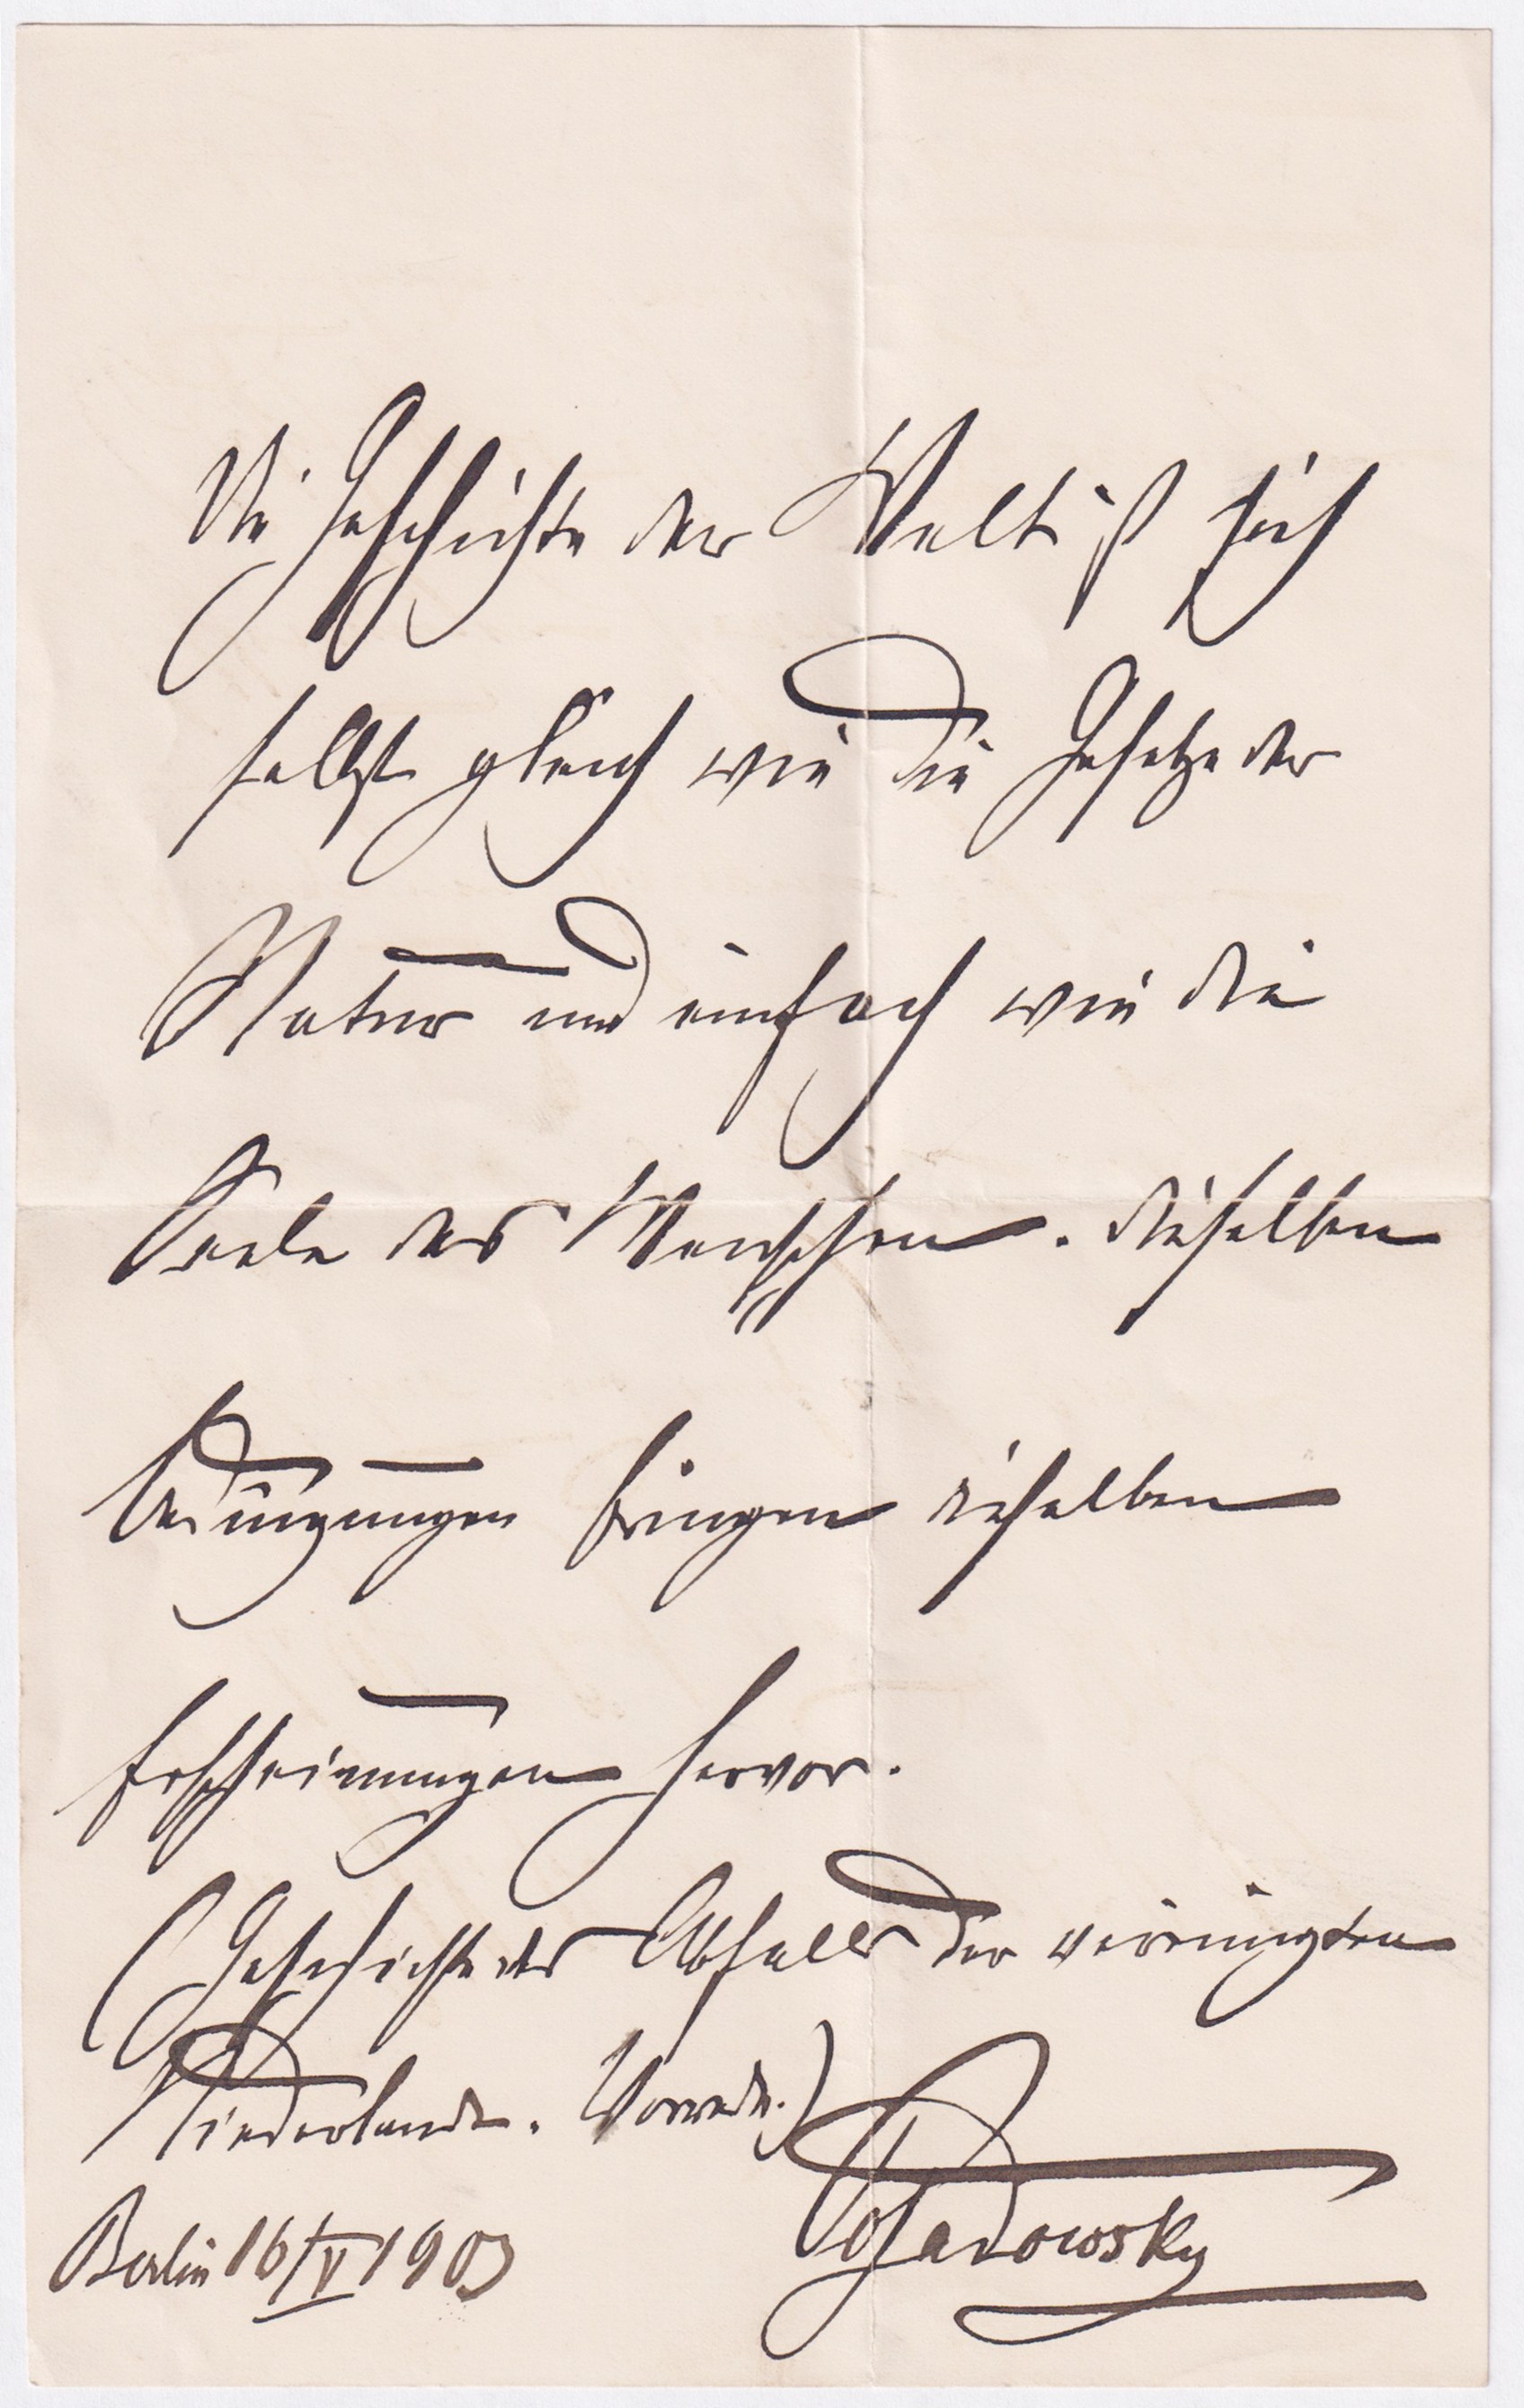 Die Geschichte der Welt ist sich
selbst gleich wie die Gesetze der
Natur und einfach wie die
Seele des Menschen. Dieselben
Bedingungen bringen dieselben
Erscheinungen hervor.
(Geschichte des Abfalls der vereinigten
Niederlande. Vorrede.)
Posadowsky
Berlin 16/V 1903